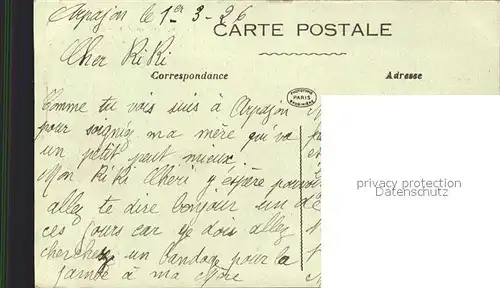 Arpajon le 1er - 3 - 26
CARTE POSTALE
Cher KiKi
Correspondance
Adresse
PARIS
Comme tu vois suis à Arpajon
pour soigner ma mère qui va
un petit peut mieux.
Mon KiKi Chéri j'éspère pouvoir
allez te dire bonjour un de
ces jours car je dois allez
cherchez un bandage pour la
jambe à ma Mère
privacy protection
Datenschutz